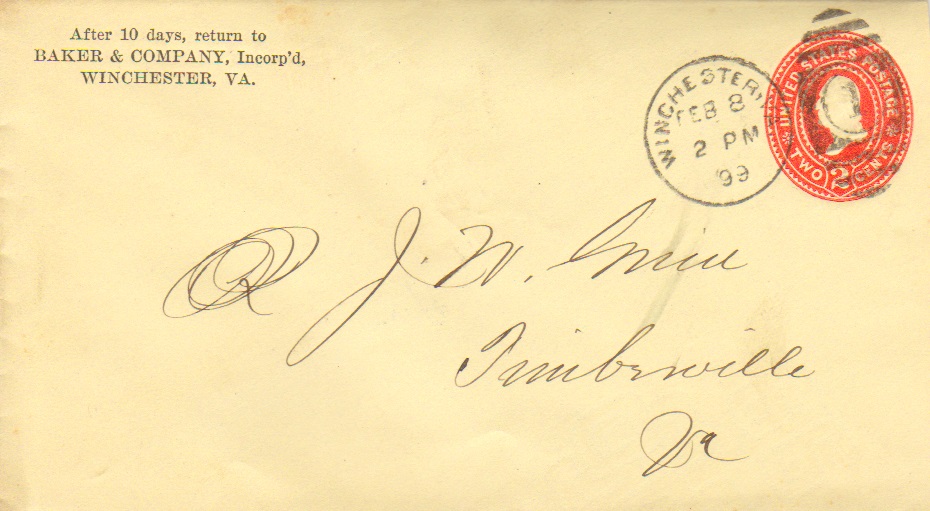 After 10 days, return to
BAKER & COMPANY, Incorp'd,
WINCHESTER, VA.
WINCHESTER,
FEB 8
2 PM
'99
UNITED STATES POSTAGE
TWO 2 CENTS
J. W.
Timberville
Va